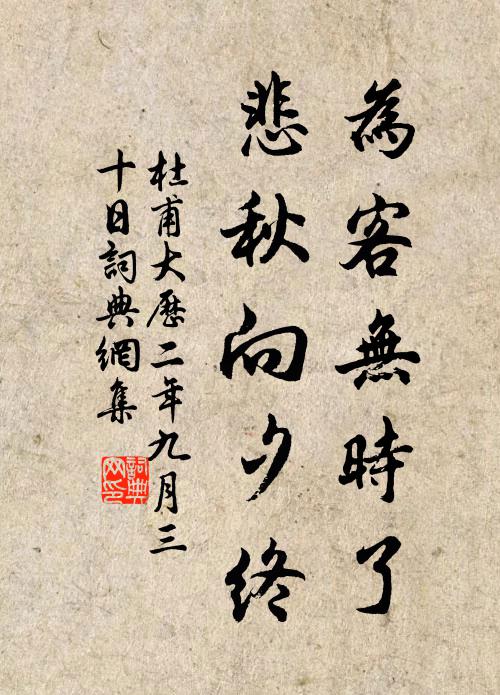 為客無時了
悲秋向夕終
杜甫大歷二年九月三
十日詞典網集
詞典
网印